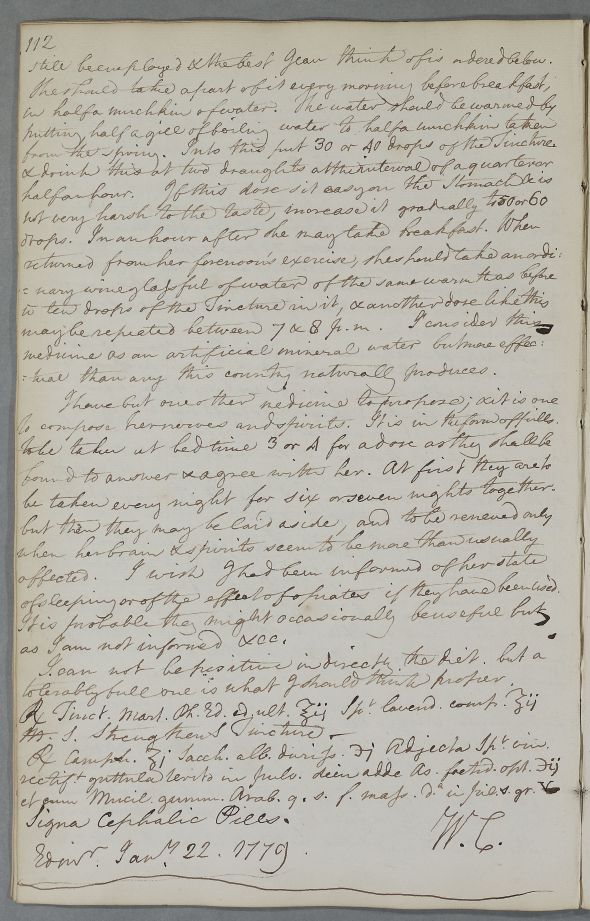 112
still be employed & the best I can think of is ordered below.
She should take a part of it every morning before breakfast,
in half a muchkin of water. The water should be warmed by
putting half a gill of boiling water to half a muchkin taken
from the spring. Into this put 30 or 40 drops of the Tincture
& drink this at two draughts at the interval of a quarter or
half an hour. If this dose sit easy on the Stomach & is
not very harsh to the taste, increase it gradually to 50 or 60
drops. In an hour after she may take breakfast. When
returned from her forenoon's exercise, she should take an ordi:
:nary wine glassful of water of the same warmth as before
wt ten drops of the Tincture in it, & another dose like this
may be repeated between 7 & 8 p.m. I consider this
medicine as an artificial mineral water but more effec:
:tual than any this country naturally produces.
I have but one other medicine to propose; & it is one
to compose her nerves and spirits. It is in the form of pills
to be taken at bed time 3 or 4 for a dose as they shall be
found to answer & agree with her. At first they are to
be taken every night for six or seven nights together.
but then they may be laid aside, and to be renewed only
when her brain & spirits seem to be more than usually
affected. I wish I had been informed of her state
of sleeping or of the effect of opiates if they have been used.
It is probable they might occasionally be useful but
as I am not informed &cc.
I can not be positive in directing the diet. but a
tolerably full one is what I should think proper.
℞ Tinct. Mart. Ph. Ed. ed ult. ℥ij Spt. lavend. comp. ʒij
M. S. Strengthens Tincture.
℞ Camph. ʒj Sacch. alb. duriss. ℈j Adjecta Spt. vin.
rectift guttula terito in pulv. dein adde As. foetid. opt. ʒij
et cum Mucil. gumm. Arab. q. s. f. mass. da in pil. s. gr. V
Signa Cephalic Pills.
W. C.
Edinr. Jany. 22. 1779